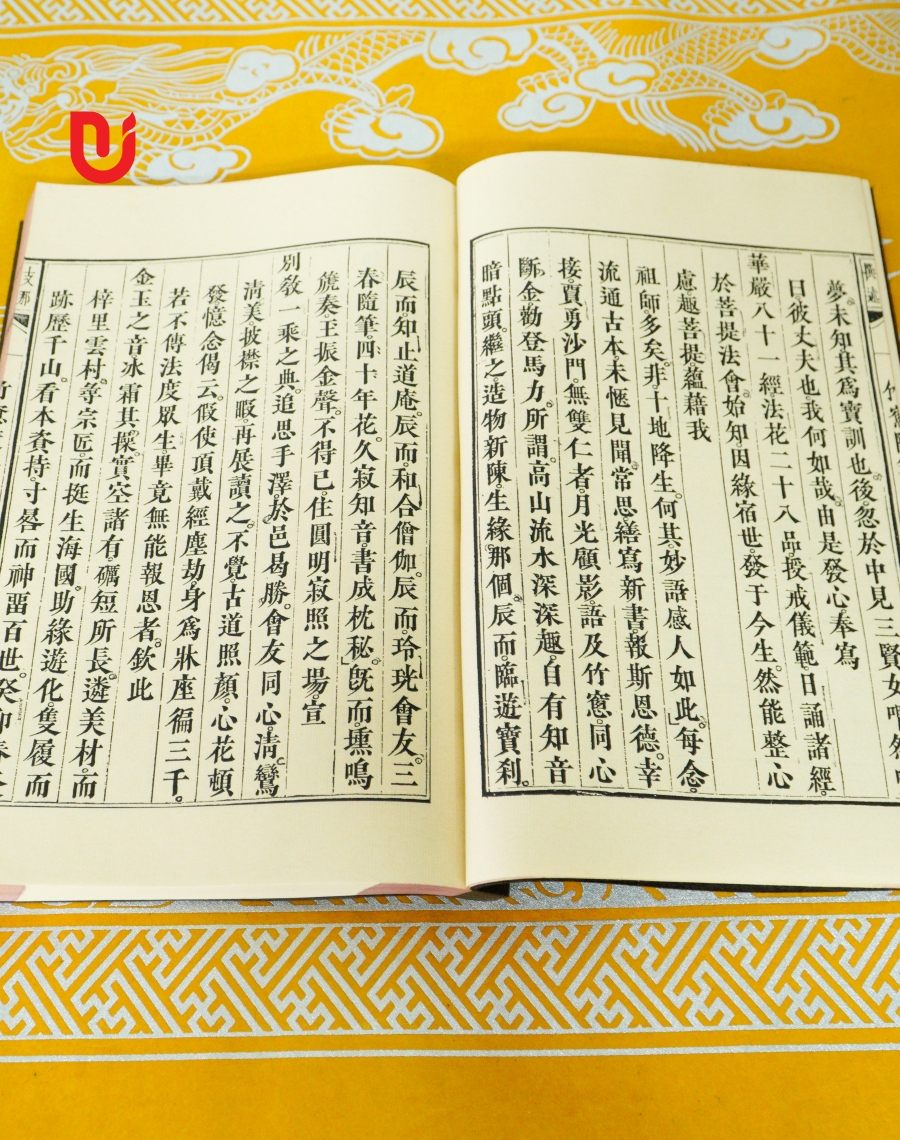 夢。未知其爲寶訓也。後忽於中見三賢女喟然
曰彼丈夫也。我何如哉。由是發心。奉寫
華嚴八十一經。法花二十八品。授戒儀範。日誦諸經。
於菩提法會。始知因緣宿世。發于今生。然能整心
慮趣菩提。蘊藉我
祖師多矣。非十地降生。何其妙語感人如此。每念。
流通古本。未愜見聞。常思繕寫新書。報斯恩德。幸
接。賈勇沙門。無雙仁者。月光顧影。語及竹窻。同心
斷金。勸登馬力。所謂。高山流水深深趣。自有知音
暗點頭。繼之。造物新陳。生緣。那個。辰而。臨遊寶刹。
辰而知止道庵。辰而。和合僧伽。辰而。玲珖會友。三
春隨筆。四十年花。久寂知音。書成枕秘。旣而。壎鳴
箎奏。玉振金聲。不得已。住圓明寂照之場。宣
別敎一乘之典。追思手澤。於邑曷勝。會友同心。淸鸞
淸美。披襟之暇。再展讀之。不覺。古道照顏。心花頓
發。憶念偈云。假使頂戴經塵劫。身爲牀座徧三千。
若不傳法度眾生。畢竟無能報恩者。欽此
金玉之音。冰霜其操。實。諸有礪短所長。遴美材。而
梓里雲村。等宗匠。而挺生海國。助緣遊化。隻履而
跡歷千山。看本賫持。寸晷而神畱百世。癸卯春
支那